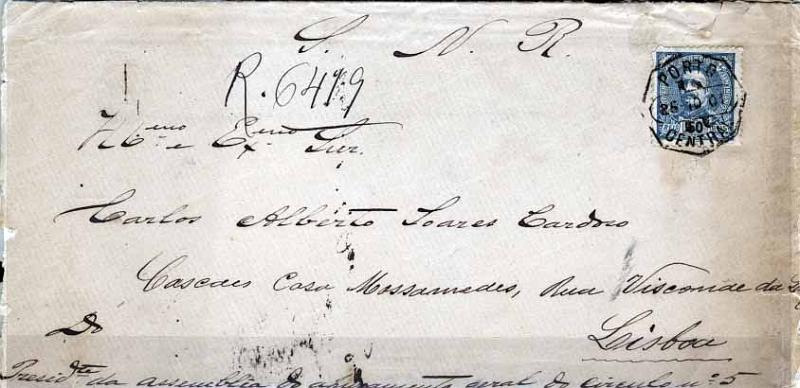 S. N. R.
R. 6419
Ill.mo e Ex.mo Snr.
Carlos Alberto Soares Cardoso
Cascaes Casa Mossamedes, Rua Visconde da
Lisboa
Do
Presid.te da assemblea de apuramento geral do circulo nº 5
PORTO
25 10 01
CENTRAL